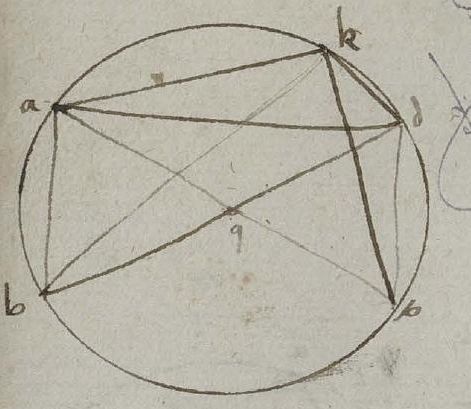 k
a
d
q
b
p